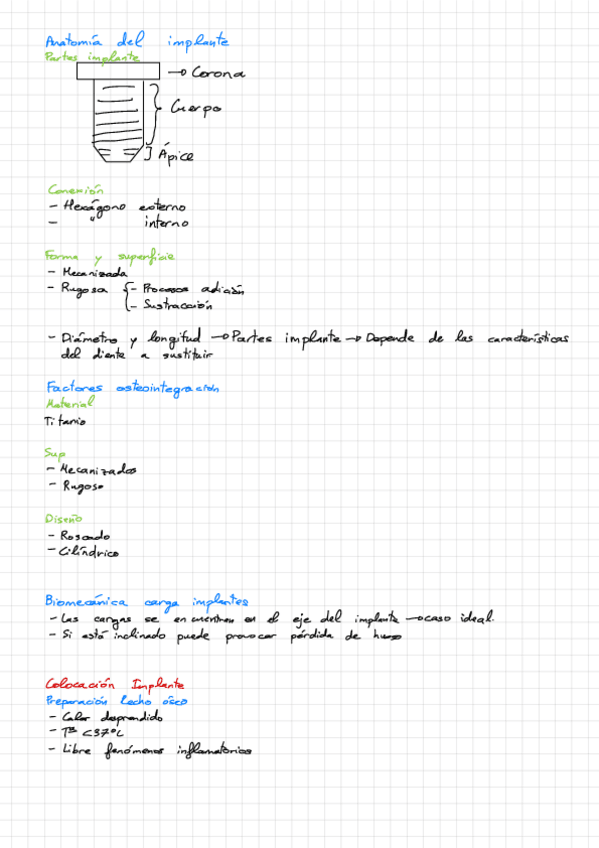 Anatomía del implante
Partes implante
→ Corona
} Cuerpo
] Ápice
Conexión
- Hexágono externo
- " interno
Forma y superficie
- Mecanizada
- Rugosa {- Procesos adición
- Sustracción
- Diámetro y longitud → Partes implante → Depende de las características
del diente a sustituir
Factores osteointegración
Material
Titanio
Sup
- Mecanizados
- Rugoso
Diseño
- Roscado
- Cilíndrico
Biomecánica carga implantes
- Las cargas se encuentren en el eje del implante → caso ideal.
- Si está inclinado puede provocar pérdida de hueso
Colocación Implante
Preparación lecho óseo
- Calor desprendido
- Tª <37ºC
- Libre fenómenos inflamatorios